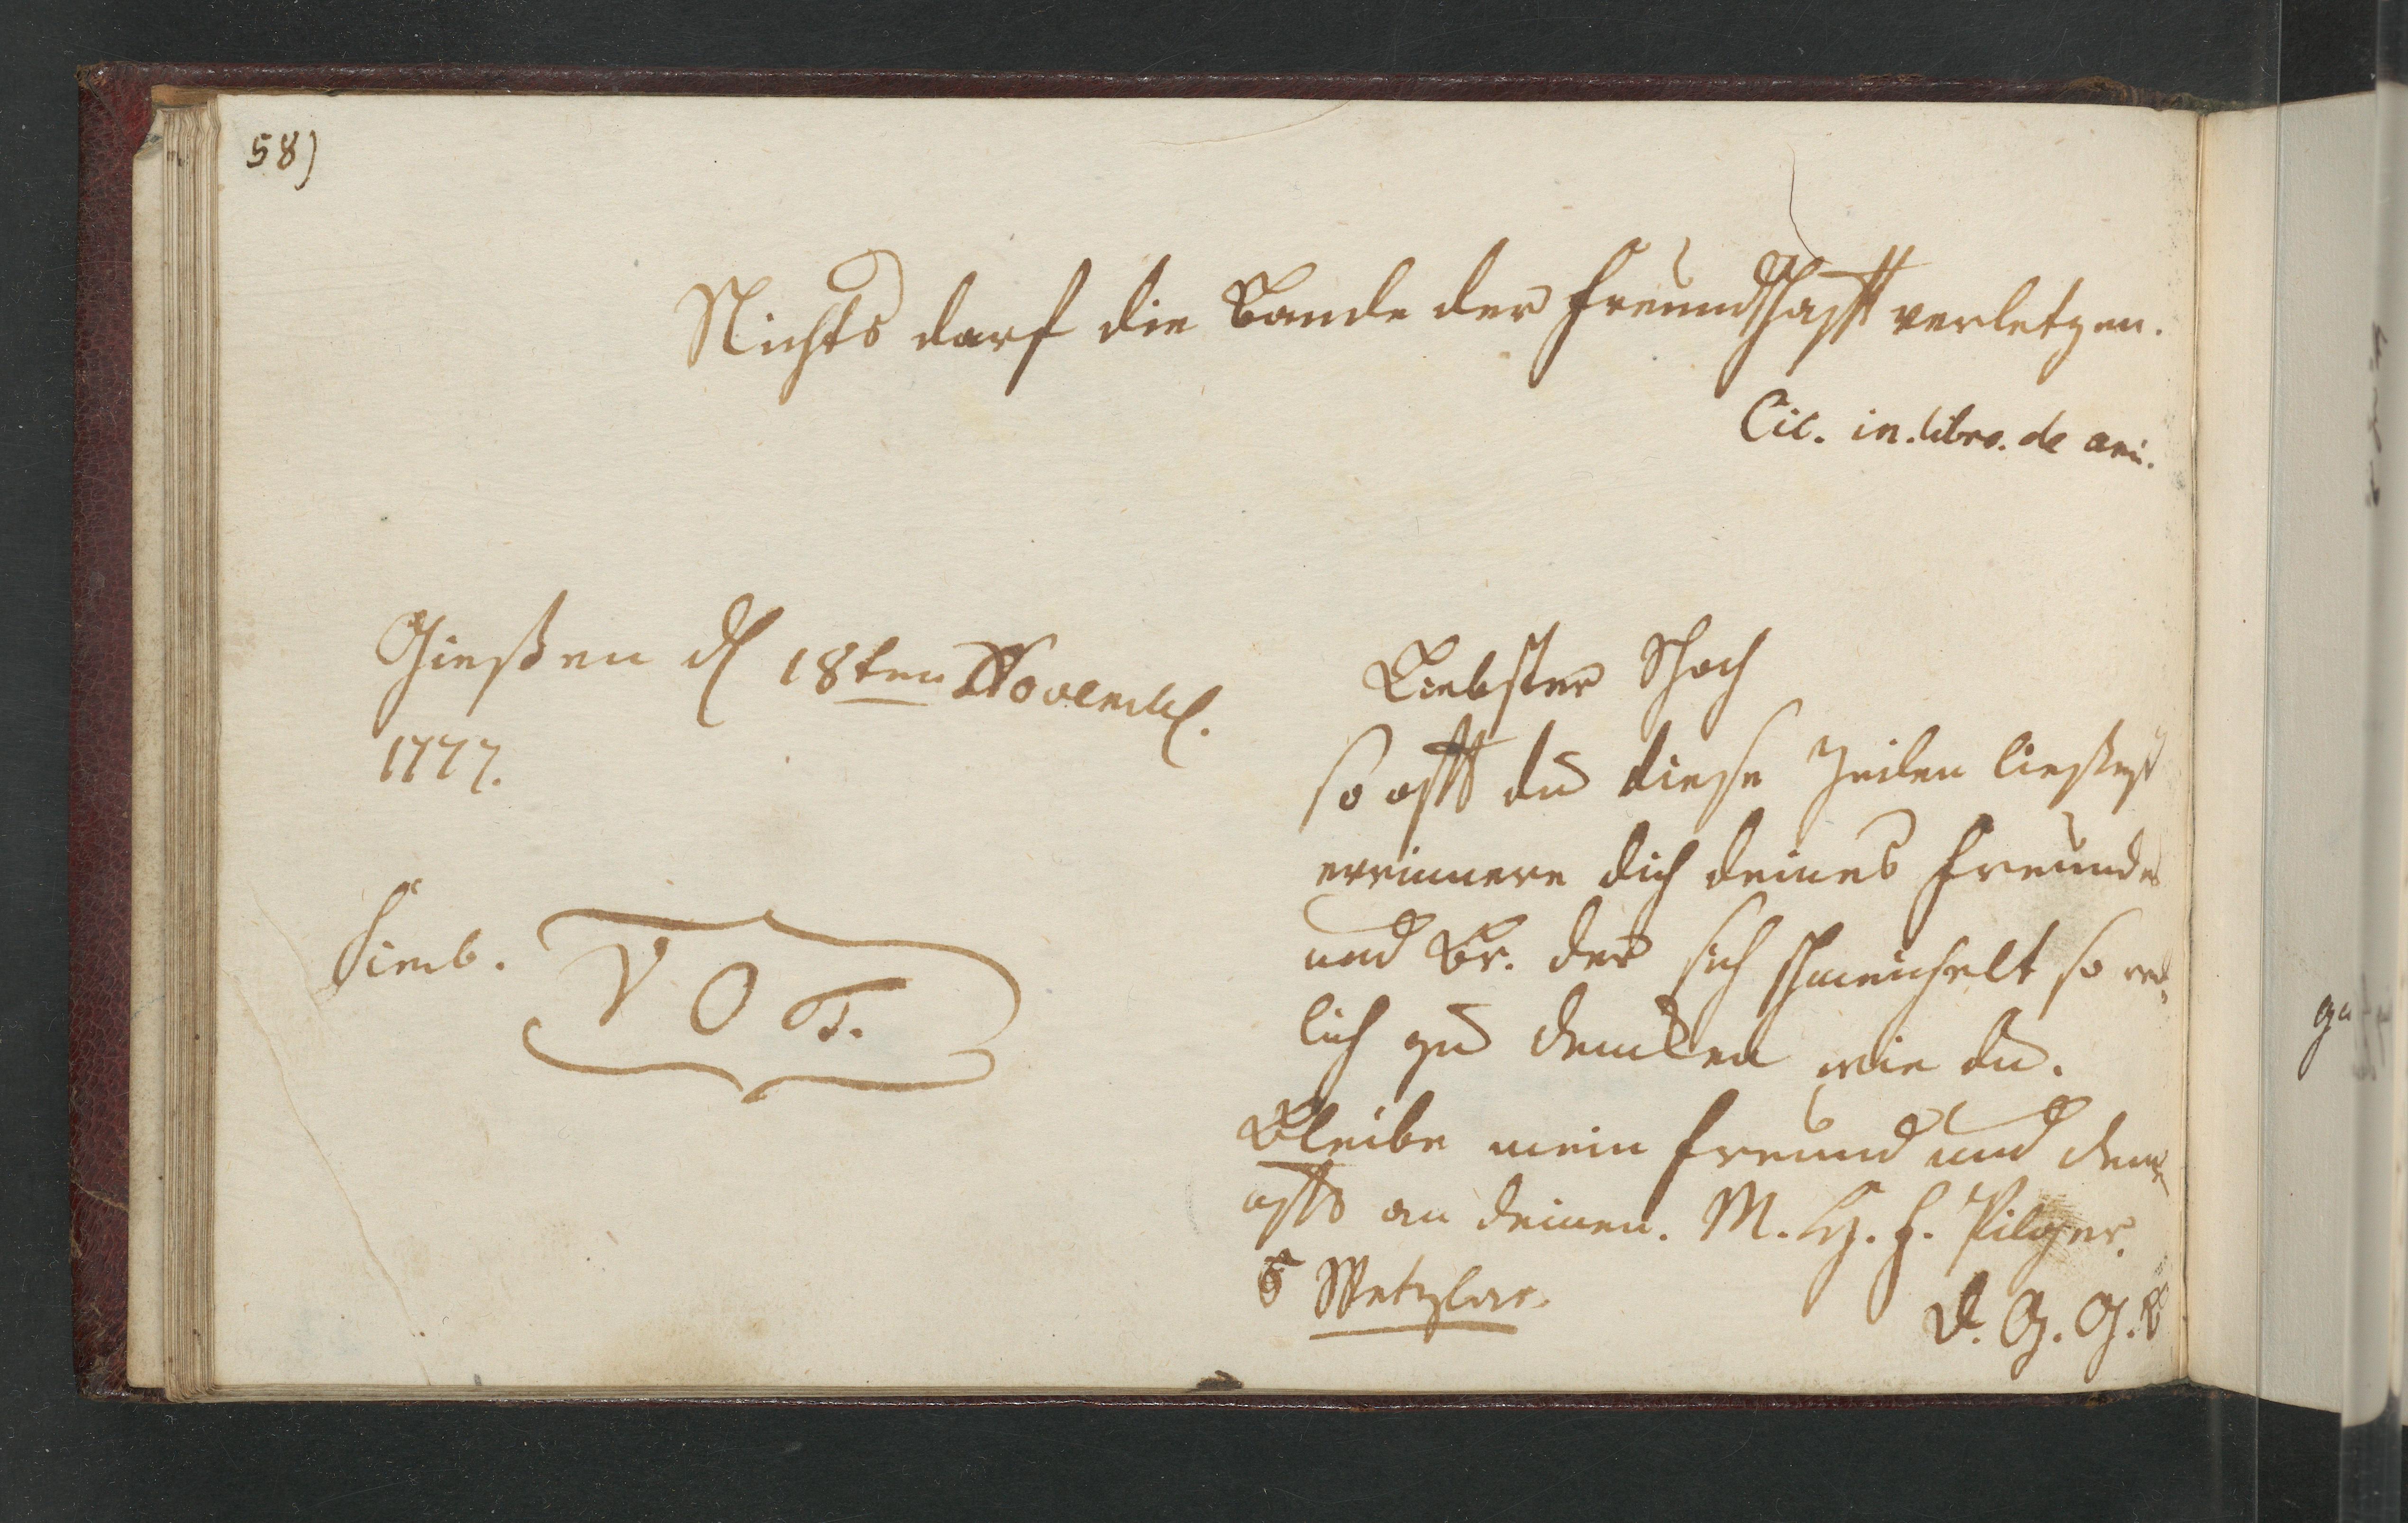 58)
Nichts darf die Bande der Freundschafft verletzen.
Cic. in. libro. de ami.
Gießen d 18ten Novembr.
1777.
Simb.
V O T.
Liebster Schoch
so offt du diese Zeilen ließest
erinnere dich deines Freundes
und Br. der sich schmeichelt so red,
lich zu dencken wie du.
Bleibe mein Freund und denck
offt an deinen. M. H. Pilger.
Wetzlar.
d. G. G. B